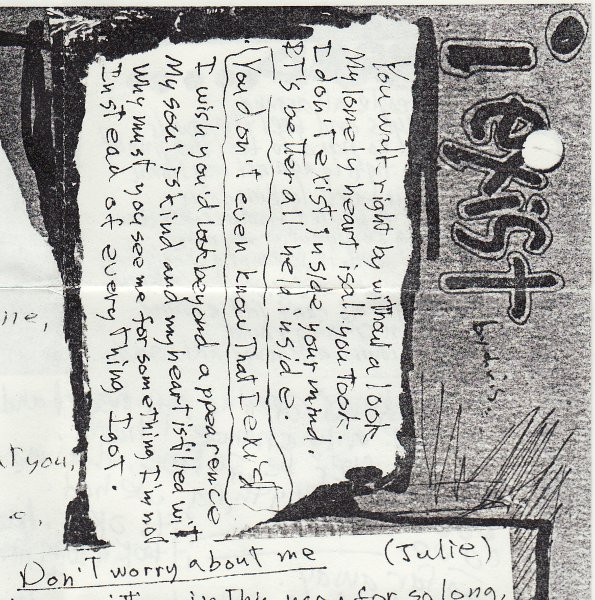 I exist
You walk right by without a look
My lonely heart is all you took.
I don't exist inside your mind.
It's better all held inside.
You don't even know That I exist
I wish you'd look beyond appearence
My soul is kind and my heart is filled wit
Why must you see me for something I'm not
Instead of every Thing I got.
at you,
Don't worry about me (Julie)
in this for so long,